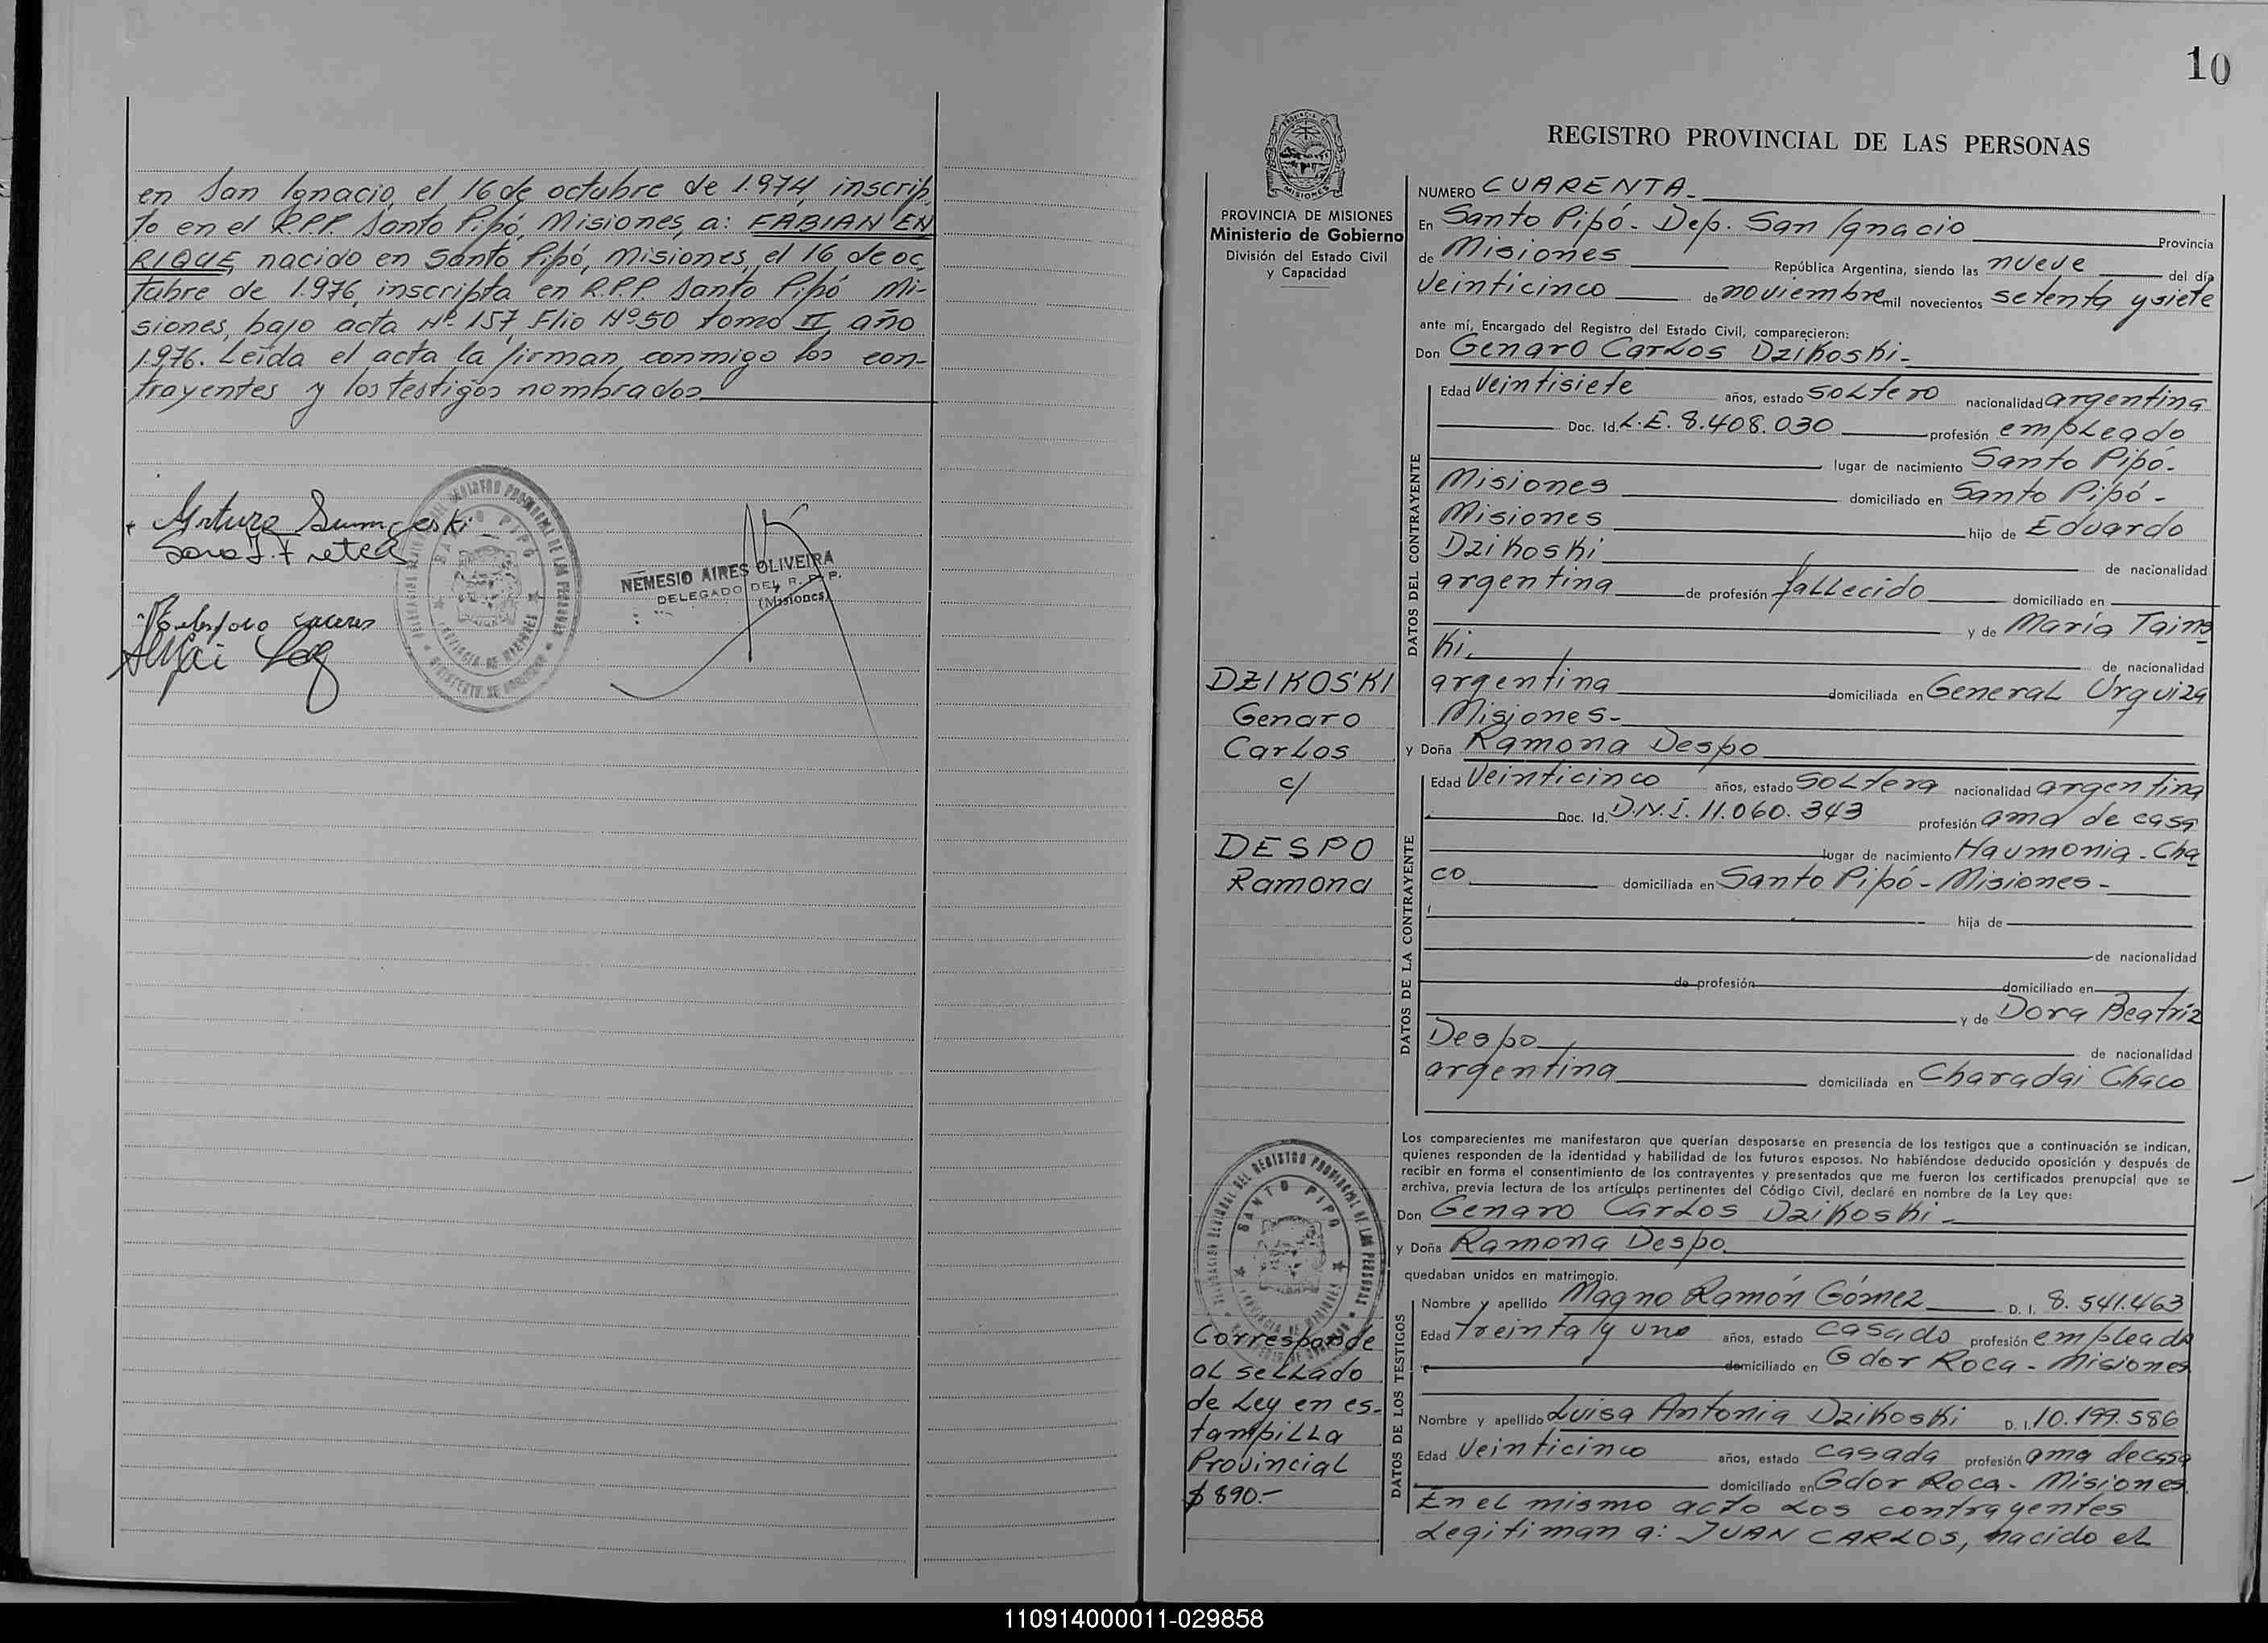 en San Ignacio, el 16 de octubre de 1.974, inscrip
to en el R.P.P. Santo Pipó, Misiones, a: FABIAN EN
RIQUE, nacido en Santo Pipó, Misiones, el 16 de oc
tubre de 1.976, inscripta en R.P.P. Santo Pipó Mi-
siones, bajo acta Nº 157, Flio Nº 50 tomo II, año
1.976. Leída el acta la firman conmigo los con-
trayentes y los testigos nombrados
Arturo
Sara J. Fretes
NEMESIO AIRES OLIVEIRA
DELEGADO DEL R. P. P.
(Misiones)
SANTO PIPO
10
PROVINCIA DE MISIONES
Ministerio de Gobierno
División del Estado Civil
y Capacidad
REGISTRO PROVINCIAL DE LAS PERSONAS
NUMERO CUARENTA-
En Santo Pipó - Dep. San Ignacio Provincia
de Misiones República Argentina, siendo las nueve del día
veinticinco de noviembre mil novecientos setenta y siete
ante mí, Encargado del Registro del Estado Civil, comparecieron:
Don Genaro Carlos Dzikoski-
DATOS DEL CONTRAYENTE
Edad veintisiete años, estado soltero nacionalidad argentina
Doc. Id. L.E. 8.408.030 profesión empleado
lugar de nacimiento Santo Pipó-
Misiones domiciliado en Santo Pipó-
Misiones hijo de Eduardo
Dzikoski de nacionalidad
argentina de profesión fallecido domiciliado en
y de María Tains
ki, de nacionalidad
argentina domiciliada en General Urquiza
Misiones-
DZIKOSKI
Genaro
Carlos
c/
DESPO
Ramona
y Doña Ramona Despo
DATOS DE LA CONTRAYENTE
Edad veinticinco años, estado soltera nacionalidad argentina
Doc. Id. D.N.I. 11.060.343 profesión ama de casa
lugar de nacimiento Haumonia - Cha
co domiciliada en Santo Pipó - Misiones-
hija de
de nacionalidad
de profesión domiciliado en
y de Dora Beatríz
Despo de nacionalidad
argentina domiciliada en Charadai Chaco
Los comparecientes me manifestaron que querían desposarse en presencia de los testigos que a continuación se indican,
quienes responden de la identidad y habilidad de los futuros esposos. No habiéndose deducido oposición y después de
recibir en forma el consentimiento de los contrayentes y presentados que me fueron los certificados prenupcial que se
archiva, previa lectura de los artículos pertinentes del Código Civil, declaré en nombre de la Ley que:
Don Genaro Carlos Dzikoski-
y Doña Ramona Despo
quedaban unidos en matrimonio.
DATOS DE LOS TESTIGOS
Nombre y apellido Magno Ramón Gómez D. I. 8.541.463
Edad treinta y uno años, estado casado profesión empleado
domiciliado en Gdor Roca - Misiones
Nombre y apellido Luisa Antonia Dzikoski D. I. 10.199.586
Edad veinticinco años, estado casada profesión ama de casa
domiciliado en Gdor Roca - Misiones
En el mismo acto los contrayentes
Legitiman a: JUAN CARLOS, nacido el
SANTO PIPO
Corresponde
al sellado
de Ley en es-
tampilla
Provincial
$ 890.-
110914000011-029858